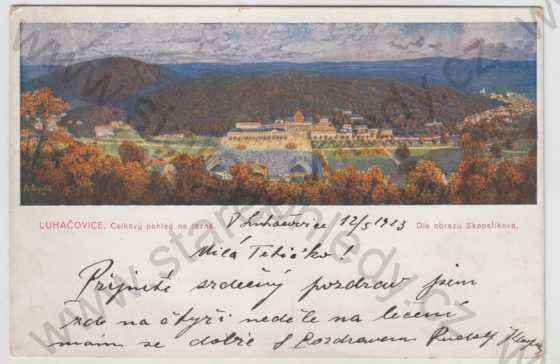 LUHAČOVICE. Celkový pohled na lázně. Dle obrazu Skopalíkova.
V Luhačovice 12/5 1923
Milá Tetičko!
Přijmětě srdečný pozdrav jsem
zde na čtyři neděle na lecení
mam se dobře S Pozdravem Rudolf
www.starepohledy.cz